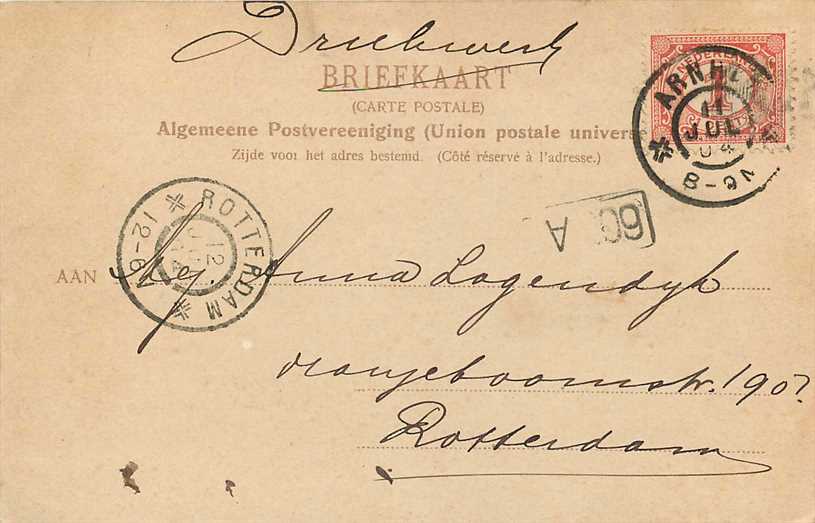 Drukwerk
BRIEFKAART
(CARTE POSTALE)
Algemeene Postvereeniging (Union postale univers
Zijde voor het adres bestemd. (Côté réservé à l'adresse.)
NEDERLAND
ARNHE
11
JUL
04
8-9N
ROTTERDAM
12
12-6
A
AAN Mej Anna Lagendyk
oranjeboomstr. 190
Rotterdam